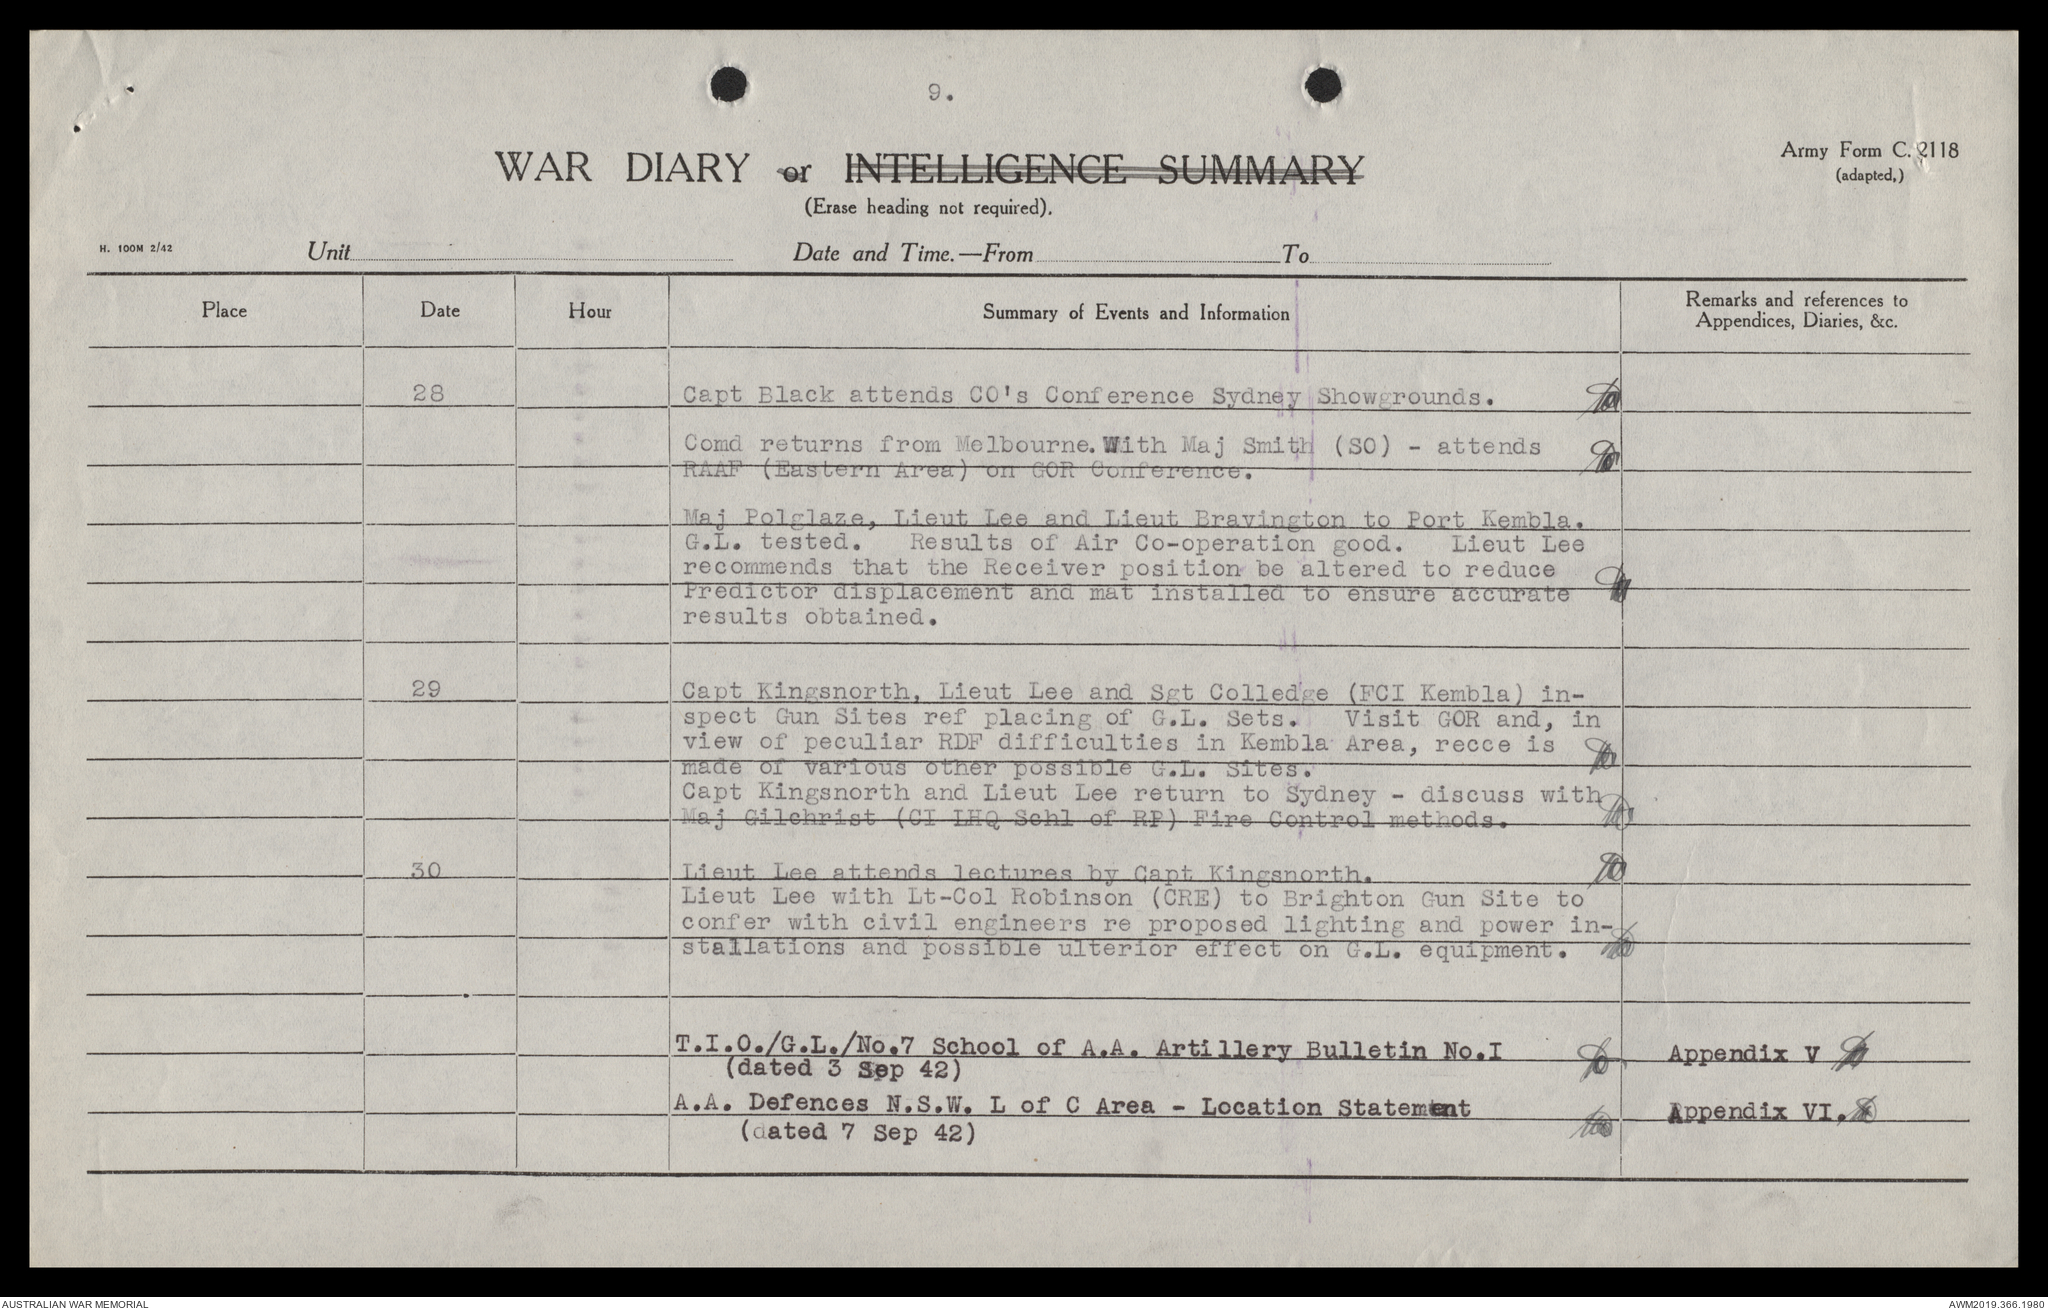 9.
Army Form C. 2118
(adapted.)
WAR DIARY or INTELLIGENCE SUMMARY
(Erase heading not required).
H. 100M 2/42
Unit Date and Time.—From To
Place Date Hour Summary of Events and Information Remarks and references to
Appendices, Diaries, &c.
28 Capt Black attends CO's Conference Sydney Showgrounds.
Comd returns from Melbourne. With Maj Smith (SO) - attends
RAAF (Eastern Area) on GOR Conference.
Maj Polglaze, Lieut Lee and Lieut Bravington to Port Kembla.
G.L. tested. Results of Air Co-operation good. Lieut Lee
recommends that the Receiver position be altered to reduce
Predictor displacement and mat installed to ensure accurate
results obtained.
29 Capt Kingsnorth, Lieut Lee and Sgt Colledge (FCI Kembla) in-
spect Gun Sites ref placing of G.L. Sets. Visit GOR and, in
view of peculiar RDF difficulties in Kembla Area, recce is
made of various other possible G.L. Sites.
Capt Kingsnorth and Lieut Lee return to Sydney - discuss with
Maj Gilchrist (CI LHQ Schl of RP) Fire Control methods.
30 Lieut Lee attends lectures by Capt Kingsnorth.
Lieut Lee with Lt-Col Robinson (CRE) to Brighton Gun Site to
confer with civil engineers re proposed lighting and power in-
stallations and possible ulterior effect on G.L. equipment.
T.I.O./G.L./No.7 School of A.A. Artillery Bulletin No.I Appendix V
(dated 3 Sep 42)
A.A. Defences N.S.W. L of C Area - Location Statement Appendix VI.
(dated 7 Sep 42)
AUSTRALIAN WAR MEMORIAL AWM2019.366.1980